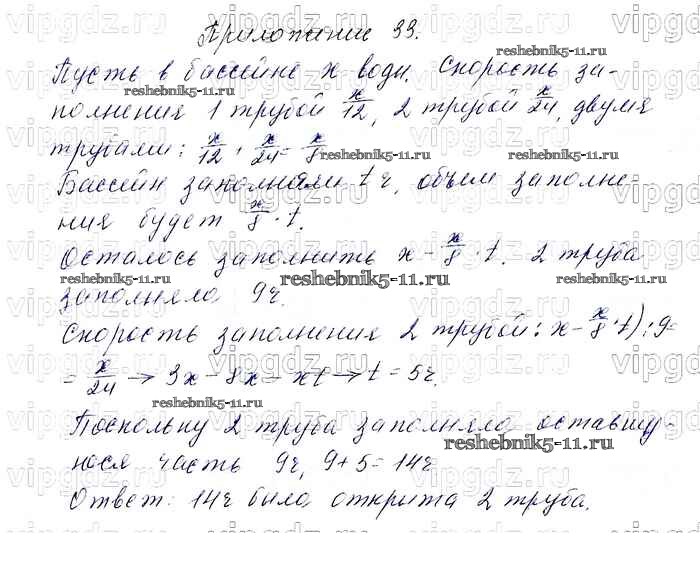 Приложение 33.
Пусть в бассейне x воды. Скорость за-
полнения 1 трубой x/12, 2 трубой x/24, двумя
трубами: x/12 + x/24 = x/8
Бассейн заполняли t ч, объем заполне-
ния будет x/8 · t.
Осталось заполнить x - x/8 · t. 2 труба
заполняла 9ч.
Скорость заполнения 2 трубой: x - x/8 · t) : 9 =
= x/24 → 3x = 8x - xt → t = 5ч.
Поскольку 2 труба заполняла оставшу-
юся часть 9ч, 9+5=14ч
Ответ: 14ч была открыта 2 труба.
vipgdz.ru
reshebnik5-11.ru